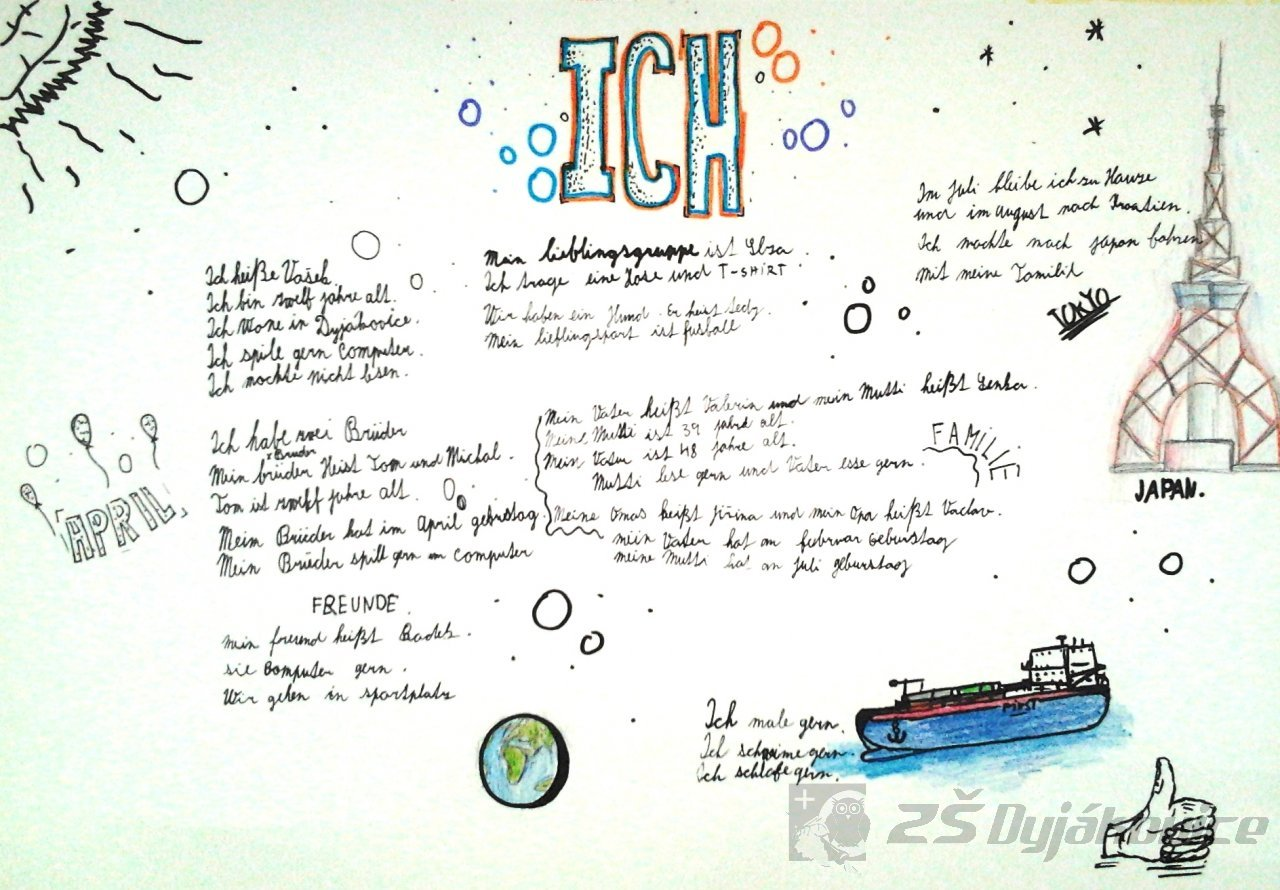 ICH
Ich heiße Vašek.
Ich bin zwelf jahre alt.
Ich wone in Dyjákovice.
Ich spile gern Computer.
Ich mochte nicht lesen.
Mein lieblingsgruppe ist
Ich trage eine Hose und T-SHIRT.
Wir haben ein Hund. Er heist
Mein lieblingsport ist fusball
Im Juli bleibe ich zu Hauze
und im august nach Kroatien.
Ich mochte nach japan fahren
mit meine Familie
TOKYO
JAPAN.
Ich habe zwei Brüder
Bruder
Mein brüder Heist Tom und Michal.
Tom ist zwelf jahre alt.
Meim Brüeder hat im April geburstag.
Mein Brüeder spill gern am computer
APRIL
Mein Vater heißt Valerin und mein Mutti heißt Lenka.
Meine Mutti ist 39 jahre alt.
Mein Vater ist 48 jahre alt.
Mutti lese gern und Vater esse gern.
FAMILIE
Meine Omas heißt Jiřina und mein Opa heißt Vaclav.
mein Vater hat am februar Geburstag
meine Mutti hat an juli geburstag
FREUNDE.
mein freund heißt Radek.
sie Computer gern.
Wir gehen in sportplatz
Ich male gern.
Ich schwime gern.
Ich schlafe gern.
ZŠ Dyjákovice